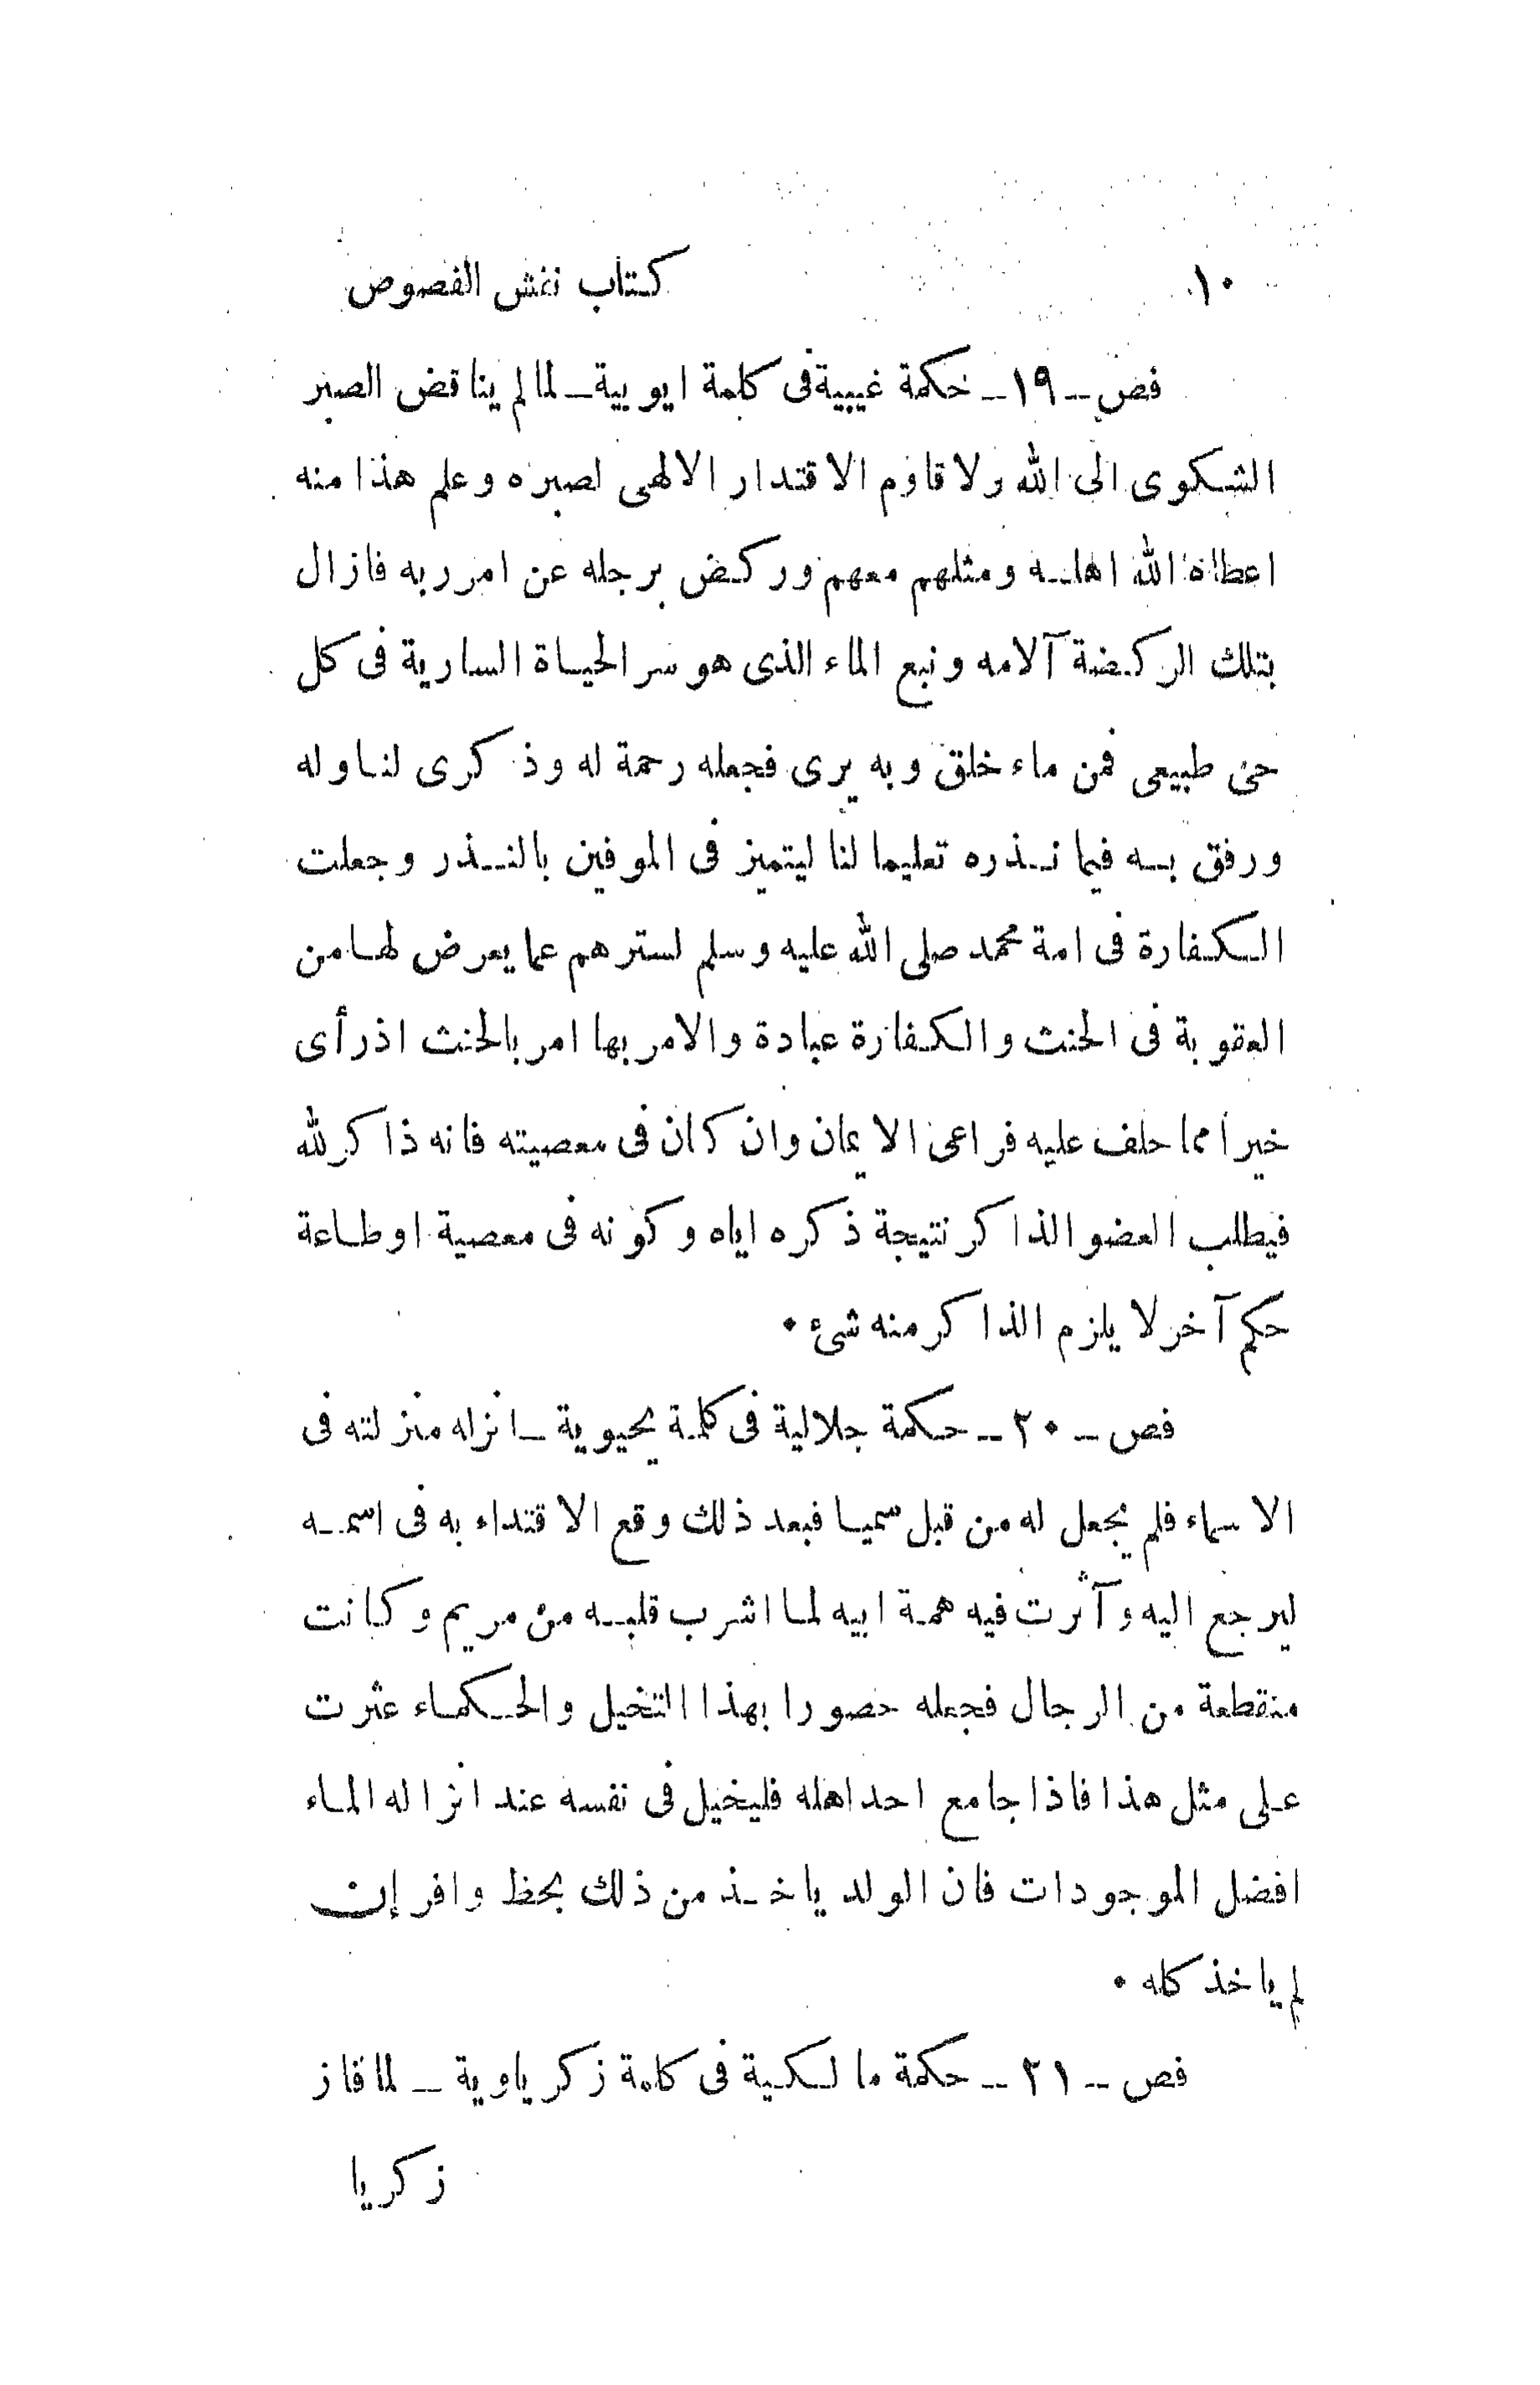 ١٠ كتاب نقش الفصوص
فص ــ ١٩ ــ حكمة غيبية فى كلمة ايوبية ــ لما لم يناقض الصبر
الشكوى الى الله ولا قاوم الاقتدار الالهى لصبره وعلم هذا منه
اعطاه الله اهله ومثلهم معهم وركض برجله عن امر ربه فازال
بتلك الركضة آلامه ونبع الماء الذى هو سر الحياة السارية فى كل
حى طبيعى فمن ماء خلق وبه يرى فجعله رحمة له وذكرى لنا وله
ورفق به فيما نذره تعليما لنا ليتميز فى الموفين بالنذر وجعلت
الكفارة فى امة محمد صلى الله عليه وسلم لسترهم عما يعرض لها من
العقوبة فى الحنث والكفارة عبادة والامر بها امر بالحنث اذ رأى
خيرا مما حلف عليه فراعى الايمان وان كان فى معصيته فانه ذاكر لله
فيطلب العضو الذاكر نتيجة ذكره اياه وكونه فى معصية او طاعة
حكم آخر لا يلزم الذاكر منه شىء ٠
فص ــ ٢٠ ــ حكمة جلالية فى كلمة يحيوية ــ انزله منزلته فى
الاسماء فلم يجعل له من قبل سميا فبعد ذلك وقع الاقتداء به فى اسمه
ليرجع اليه وآثرت فيه همة ابيه لما اشرب قلبه من مريم وكانت
منقطعة من الرجال فجعله حصورا بهذا التخيل والحكماء عثرت
على مثل هذا فاذا جامع احد اهله فليخيل فى نفسه عند انزاله الماء
افضل الموجودات فان الولد ياخذ من ذلك بحظ وافر إن
لم ياخذ كله ٠
فص ــ ٢١ ــ حكمة مالكية فى كلمة زكرياوية ــ لما فاز
زكريا